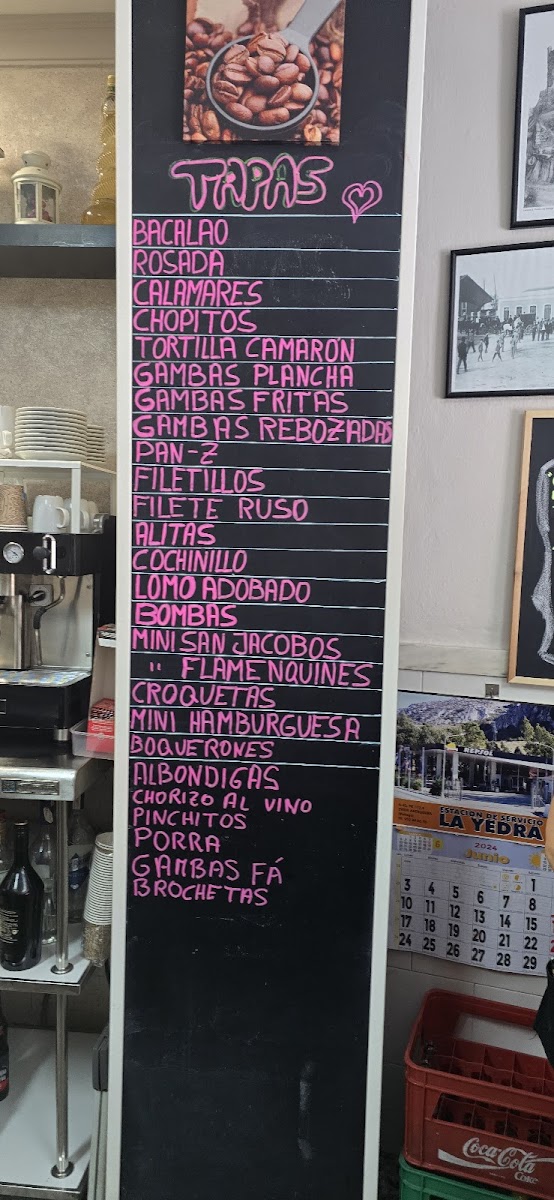 TAPAS
BACALAO
ROSADA
CALAMARES
CHOPITOS
TORTILLA CAMARÓN
GAMBAS PLANCHA
GAMBAS FRITAS
GAMBAS REBOZADAS
PAN-Z
FILETILLOS
FILETE RUSO
ALITAS
COCHINILLO
LOMO ADOBADO
BOMBAS
MINI SAN JACOBOS
" FLAMENQUINES
CROQUETAS
MINI HAMBURGUESA
BOQUERONES
ALBONDIGAS
CHORIZO AL VINO
PINCHITOS
PORRA
GAMBAS FÁ
BROCHETAS
REPSOL
ESTACION DE SERVICIO
LA YEDRA
2024
Junio
1
3 4 5 6 7 8
10 11 12 13 14 15
17 18 19 20 21 22
24 25 26 27 28 29
Coca-Cola
Coke